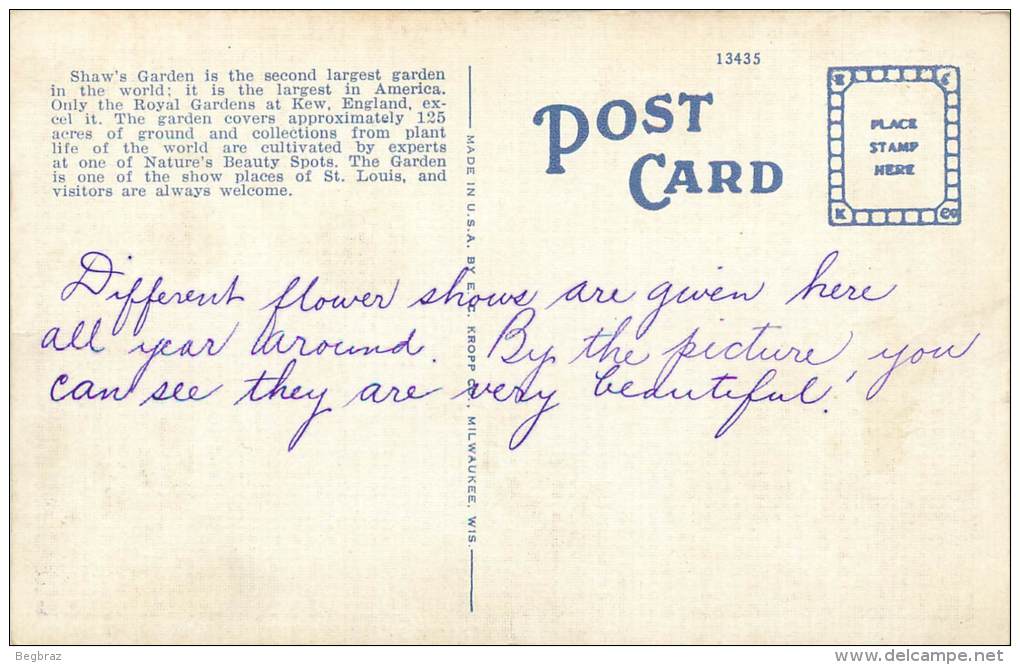 Shaw's Garden is the second largest garden
in the world; it is the largest in America.
Only the Royal Gardens at Kew, England, ex-
cel it. The garden covers approximately 125
acres of ground and collections from plant
life of the world are cultivated by experts
at one of Nature's Beauty Spots. The Garden
is one of the show places of St. Louis, and
visitors are always welcome.
MADE IN U.S.A. BY E. C. KROPP CO., MILWAUKEE, WIS.
13435
POST
CARD
E C
PLACE
STAMP
HERE
K CO
Different flower shows are given here
all year around. By the picture, you
can see they are very beautiful!
Begbraz
www.delcampe.net